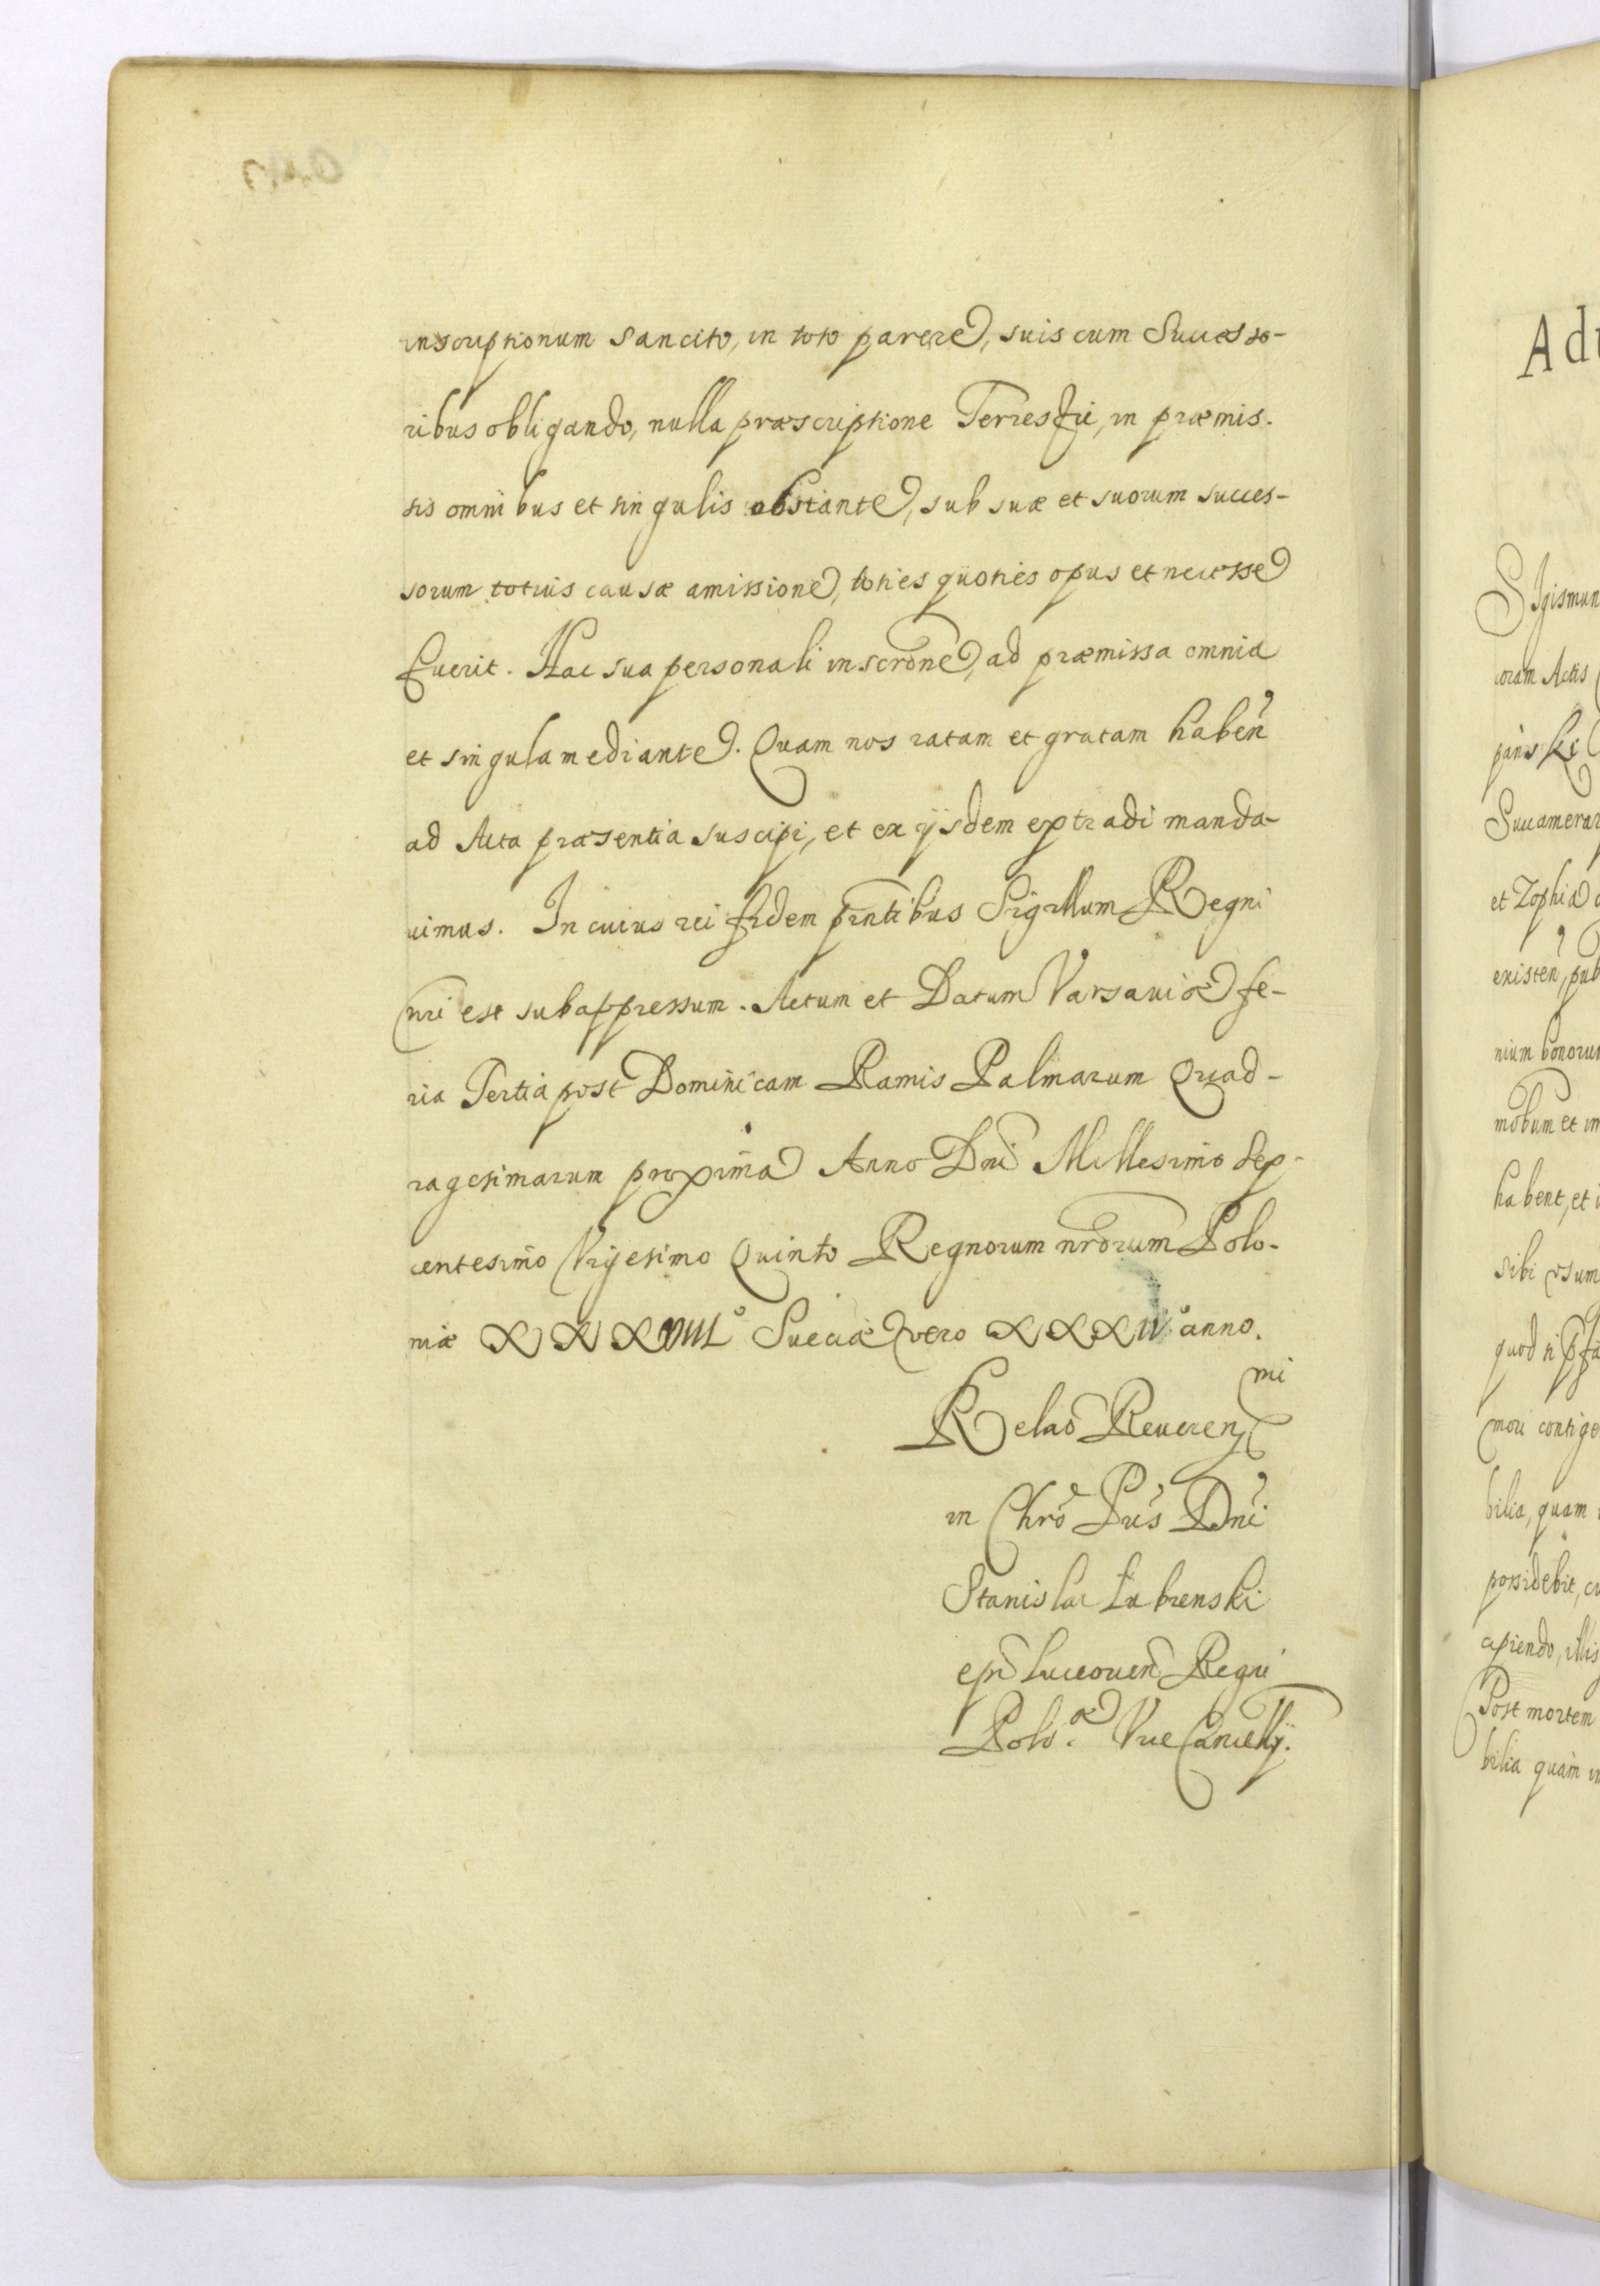 inscriptionum sancito, in toto parere, suis cum Successo-
ribus obligando, nulla præscriptione Terrestri, in præmis.
sis omnibus et singulis obstante, sub suæ et suorum succes-
sorum totius causæ amissione, toties quoties opus et necesse
fuerit. Hac sua personali inscrōne, ad præmissa omnia
et singula mediante. Quam nos ratam et gratam haben̄
ad Acta præsentia suscipi, et ex ijsdem extradi manda-
uimus. In cuius rei fidem pn̄tibus Sigillum Regni
nr̄i est subappressum. Actum et Datum Varsauiæ fe-
ria Tertia post Dominicam Ramis Palmarum Quad-
ragesimarum proxima Anno Dn̄i Millesimo sex-
centesimo Vigesimo Quinto Regnorum nr̄orum Polo-
niæ XXXVIII° Sueciæ vero XXXII° anno.
Relaō Reueren mi
in Chrō Pr̄is Dn̄i
Stanislai Łubienski
epī Luceorien̄ Regni
Polo.æ Vice Cancellij.
Adu
SIgismun
coram Actis
pinski
Succamerar
et Zophia
existen̄, pub
nium bonorum
mobilium et im
habent, et
sibi usum
quod si
mori contige
bilia, quam
possidebit, cu
apiendo, illis
Post mortem
bilia quàm in